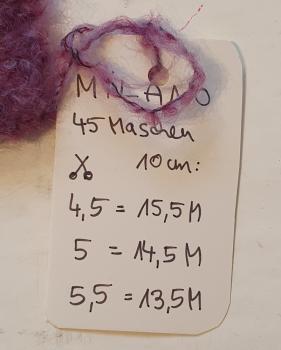 MILANO
45 Maschen
10 cm:
4,5 = 15,5 M
5 = 14,5 M
5,5 = 13,5 M